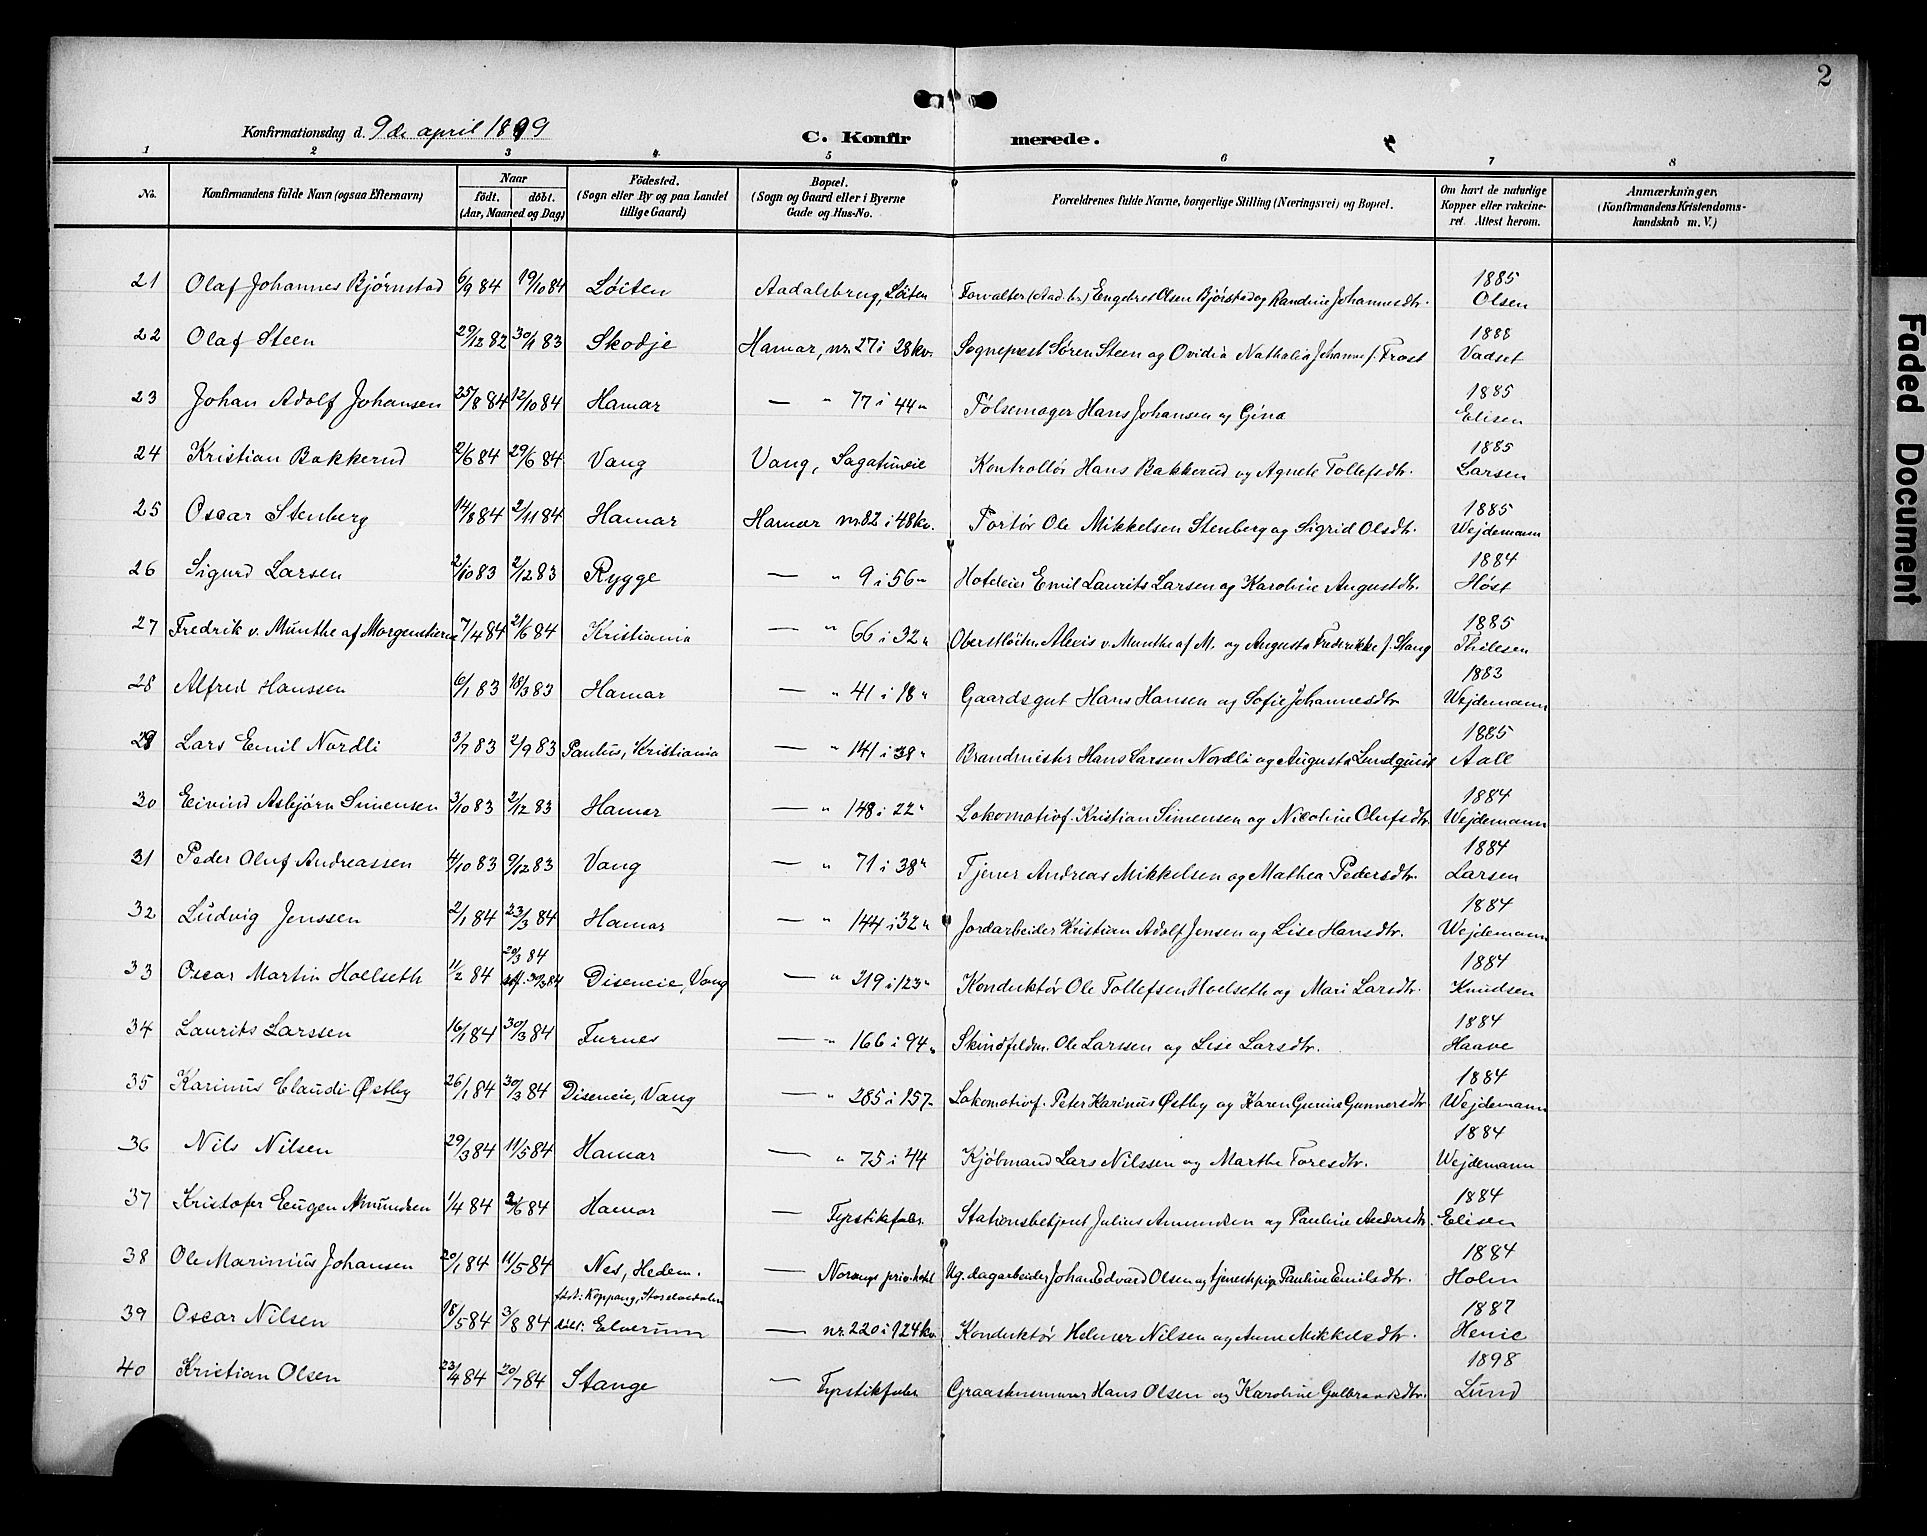 2
Konfirmationsdag d. 9de april 1899
C. Konfirmerede.
1 2 3 4 5 6 7 8
No. Konfirmandens fulde Navn (ogsaa Efternavn) Naar født. døbt. (Aar, Maaned og Dag) Fødested. (Sogn eller By og paa Landet tillige Gaard) Bopæl. (Sogn og Gaard eller i Byerne Gade og Hus-No. Forældrenes fulde Navne, borgerlige Stilling (Næringsvei) og Bopæl. Om havt de naturlige Kopper eller vakcineret. Attest herom. Anmærkninger. (Konfirmandens Kristendomskundskab m. V.)
21 Olaf Johannes Bjørnstad 6/9 84 19/10 84 Løiten Aadalsbrug, Løiten Forvalter (Aad.br.) Engebret Olsen Bjørstad og Randine Johannesdtr. 1885 Olsen
22 Olaf Steen 29/12 82 30/1 83 Skodje Hamar, nr. 27 i 28 kv. Sognepræst Søren Steen og Ovidia Nathalia Johanne f. Frost 1888 Vadset
23 Johan Adolf Johansen 25/8 84 12/10 84 Hamar — " 77 i 44 " Pølsemager Hans Johansen og Gina 1885 Elisen
24 Kristian Bakkerud 2/6 84 29/6 84 Vang Vang, Sagatuneie Kontrollør Hans Bakkerud og Agnete Tollefsdtr. 1885 Larsen
25 Oscar Stenberg 14/8 84 2/11 84 Hamar Hamar nr. 82 i 48 kv. Portør Ole Mikkelsen Stenberg og Sigrid Olsdtr. 1885 Wejdemann
26 Sigurd Larsen 2/10 83 2/12 83 Rygge — " 9 i 56 " Hoteleier Emil Laurits Larsen og Karoline Augustdtr. 1884 Høst
27 Fredrik v. Munthe af Morgenstierne 7/4 84 21/6 84 Kristiania — " 66 i 32 " Oberstløitn. Alexis v. Munthe af M. og Augusta Frederikke f. Stang 1885 Thilesen
28 Alfred Hanssen 6/1 83 18/3 83 Hamar — " 41 i 18 " Gaardsgut Hans Hansen og Sofie Johannesdtr 1883 Wejdemann
29 Lars Emil Nordli 3/7 83 2/9 83 Paulus, Kristiania — " 141 i 38 " Brandmester Hans Larsen Nordli og Augusta Lundquist 1885 Aall
30 Eivind Asbjørn Simensen 3/10 83 2/12 83 Hamar — " 148 i 22 " Lokomotivf. Kristian Simensen og Nicoline Olufsdtr 1884 Wejdemann
31 Peder Oluf Andreassen 4/10 83 9/12 83 Vang — " 71 i 38 " Tjener Andreas Mikkelsen og Mathea Pedersdtr. 1884 Larsen
32 Ludvig Jenssen 2/1 84 23/3 84 Hamar — " 144 i 32 " Jordarbeider Kristian Adolf Jensen og Lise Hansdtr. 1884 Wejdemann
33 Oscar Martin Hoelseth 11/2 84 29/3 84 30/3 84 Diseneie, Vang — " 219 i 123 " Konduktør Ole Tollefsen Hoelseth og Mari Larsdtr. 1884 Knudsen
34 Laurits Larssen 16/1 84 30/3 84 Furnes — " 166 i 94 " Skindfeldm. Ole Larssen og Lise Larsdtr. 1884 Haave
35 Karinus Claudi Østby 26/1 84 30/3 84 Diseneie, Vang — " 285 i 157 " Lokomotivf. Peter Karinus Østby og Karen Gurine Gunnersdtr 1884 Wejdemann
36 Nils Nilsen 29/3 84 11/5 84 Hamar — " 75 i 44 Kjøbmand Lars Nilssen og Marthe Toresdtr. 1884 Wejdemann
37 Kristofer Eugen Amundsen 1/4 84 2/6 84 Hamar — Fyrstikfabr. Stationsbetjent Julius Amundsen og Pauline Andersdtr. 1884 Elisen
38 Ole Marinius Johansen 20/1 84 11/5 84 Nes, Hedem. — Norangs priv. hotel Ug. dagarbeider Johan Edvard Olsen og tjenestepige Pauline Emilsdtr. 1884 Holm
39 Oscar Nilsen 18/5 84 3/8 84 født: Koppang, Storelvedalen døbt: Elverum — nr. 220 i 124 kv. Konduktør Helmer Nilsen og Anne Mikkelsdtr. 1887 Henie
40 Kristian Olsen 23/4 84 20/7 84 Stange — Fyrstikfabr. Hans Olsen og Karoline Gulbrandsdtr. 1898 Lund
Faded Document